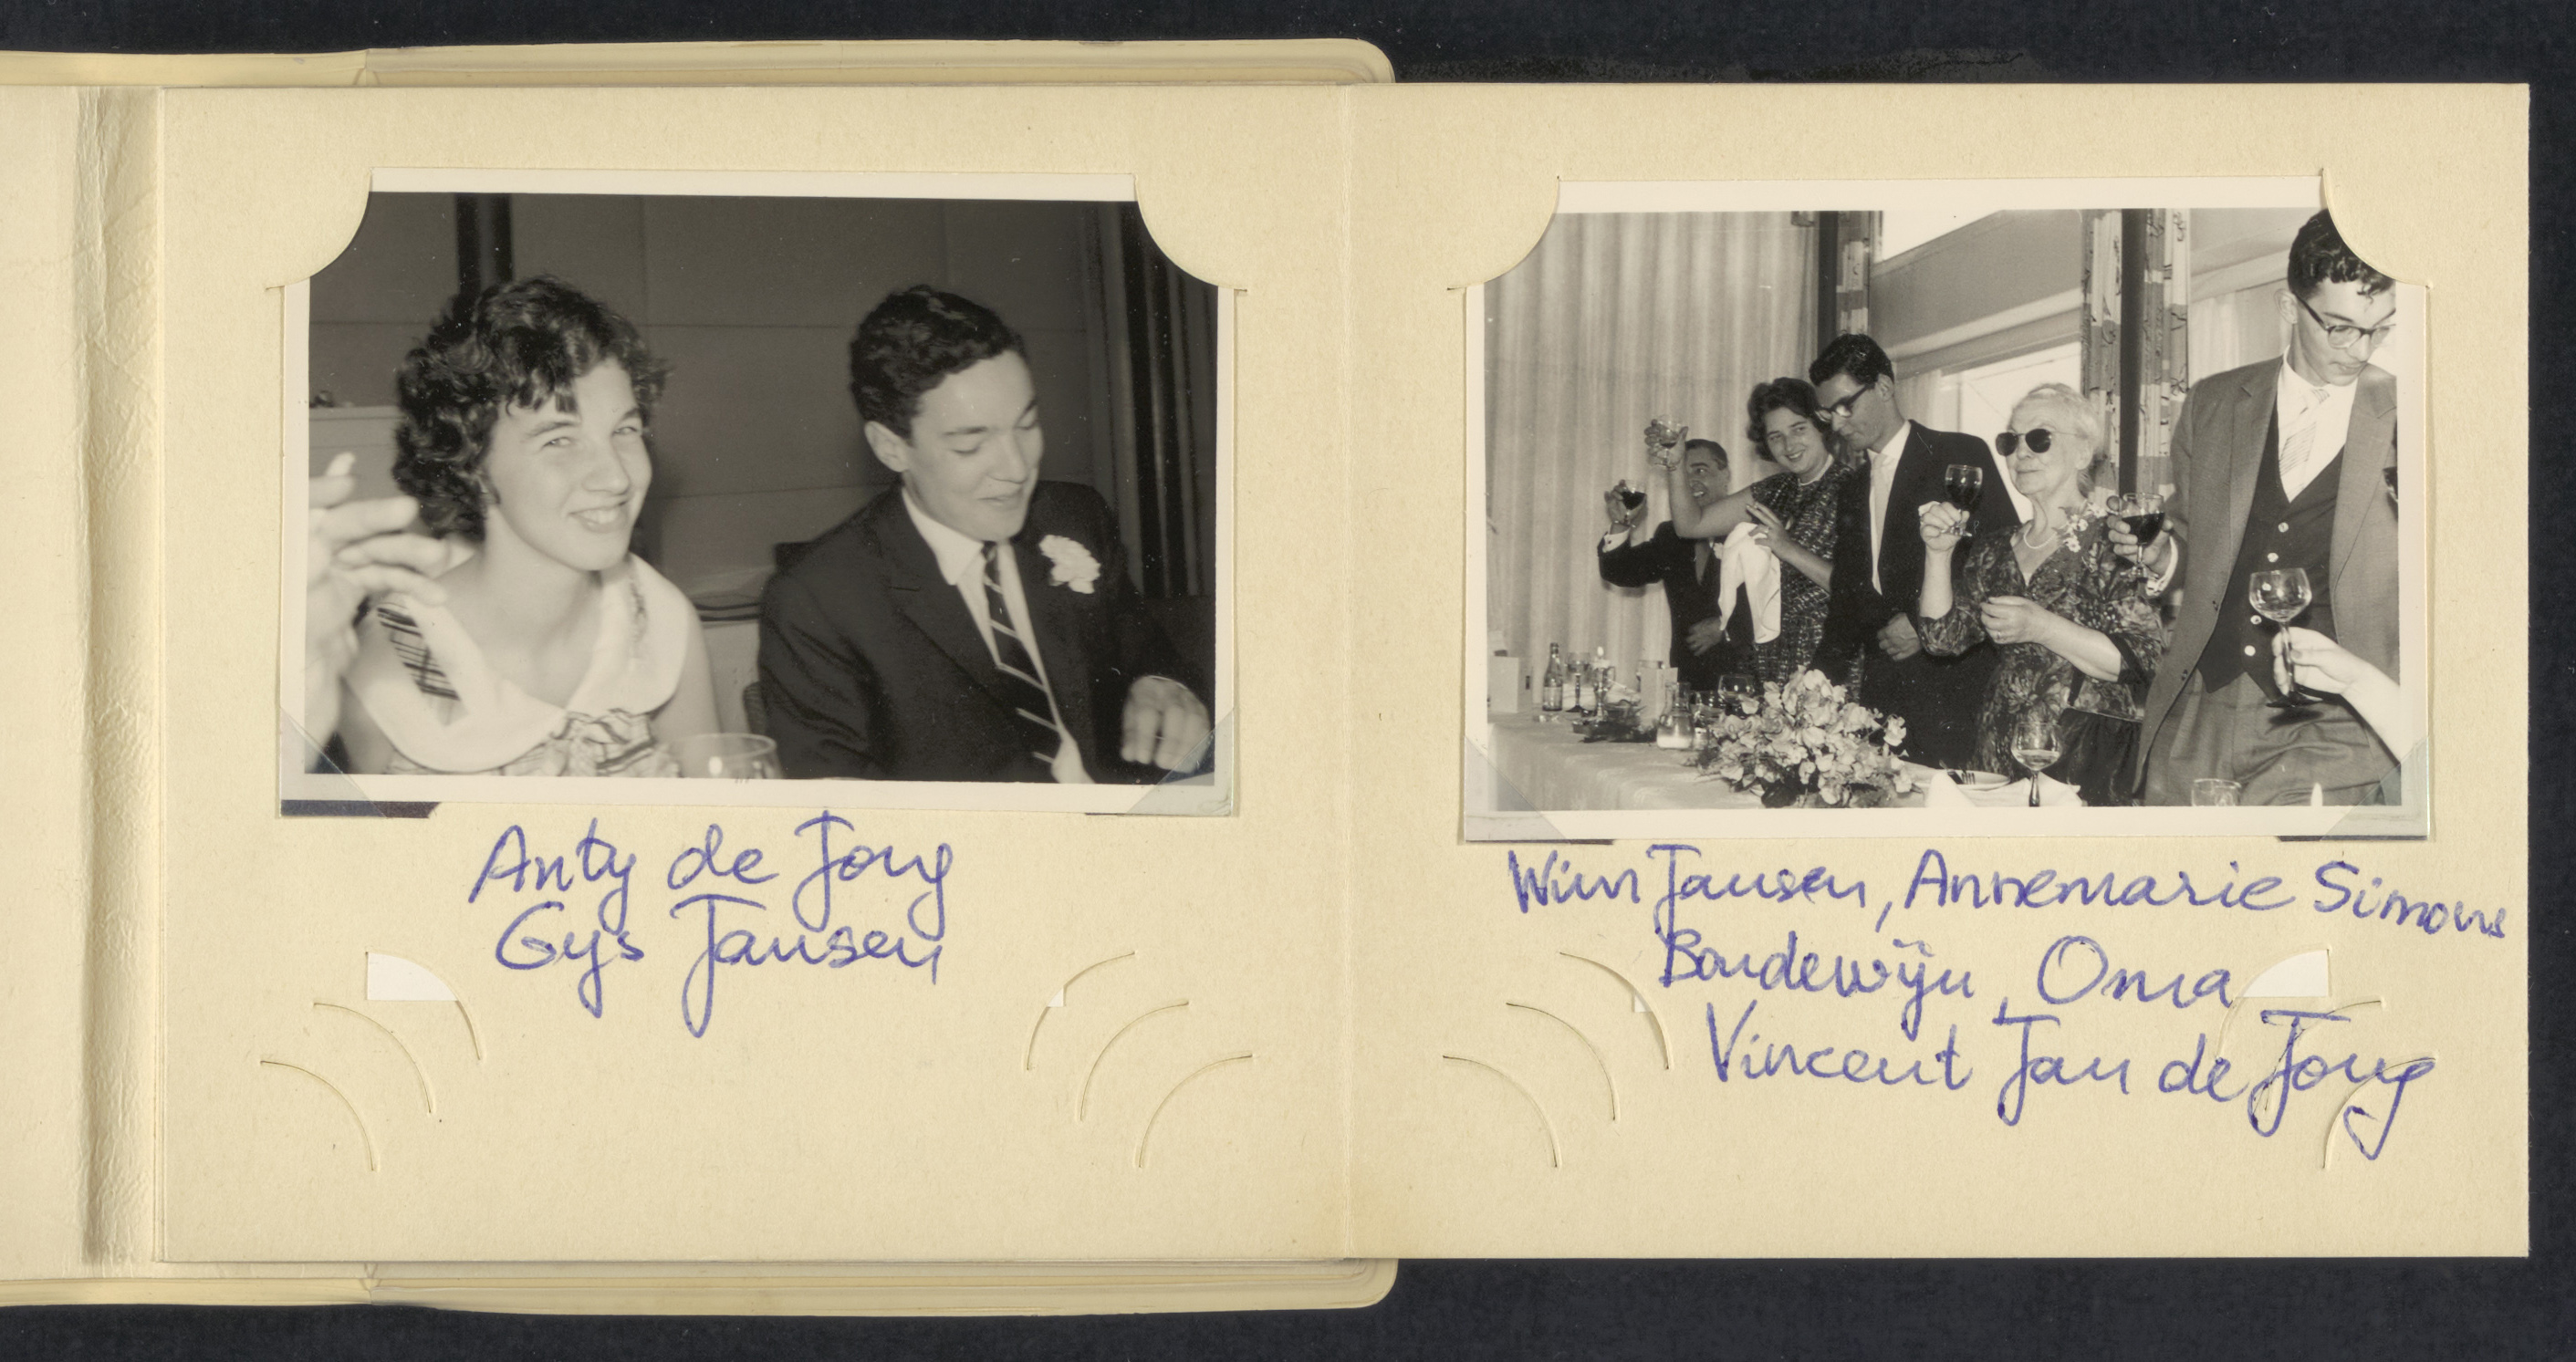 Anty de Jong
Gys Jansen
Wim Jansen, Annemarie Simons
Boudewijn, Oma
Vincent Jan de Jong